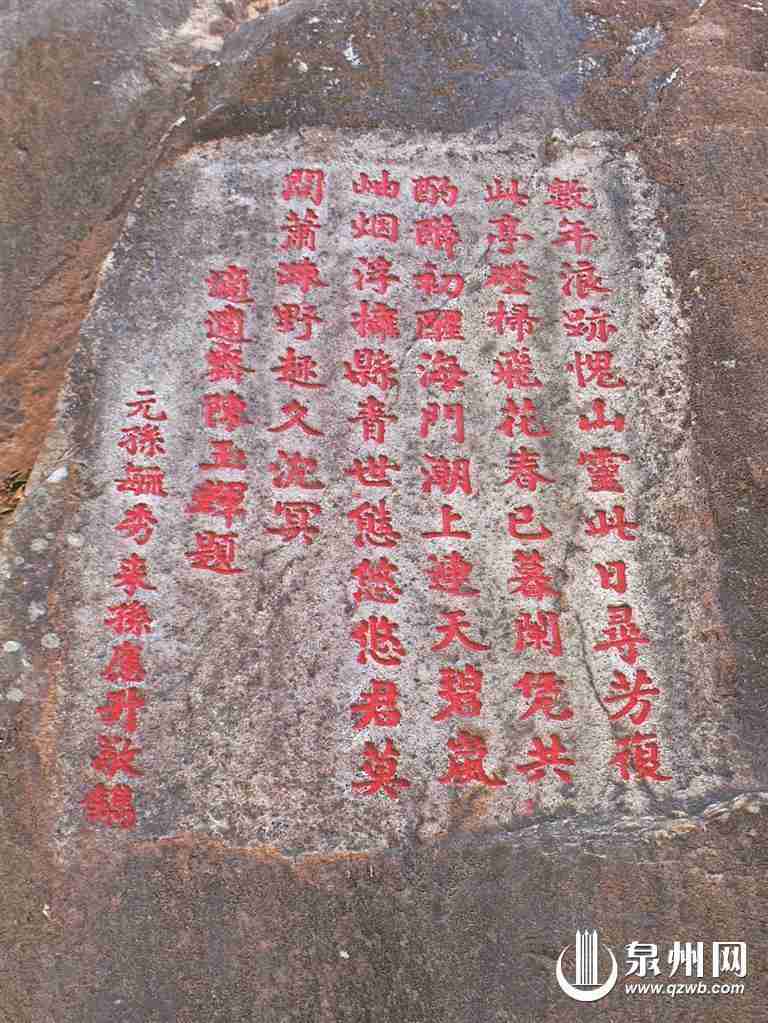 數年浪跡愧山靈此日尋芳預
此亭磴掃飛花春已暮闌凭共
酌醉初醒海門潮上連天碧嵐
岫烟浮擁縣青世態悠悠君莫
問蕭疎野趣久沈冥
適適齋陳玉輝題
元孫毓秀來孫升敬鐫
泉州网
www.qzwb.com